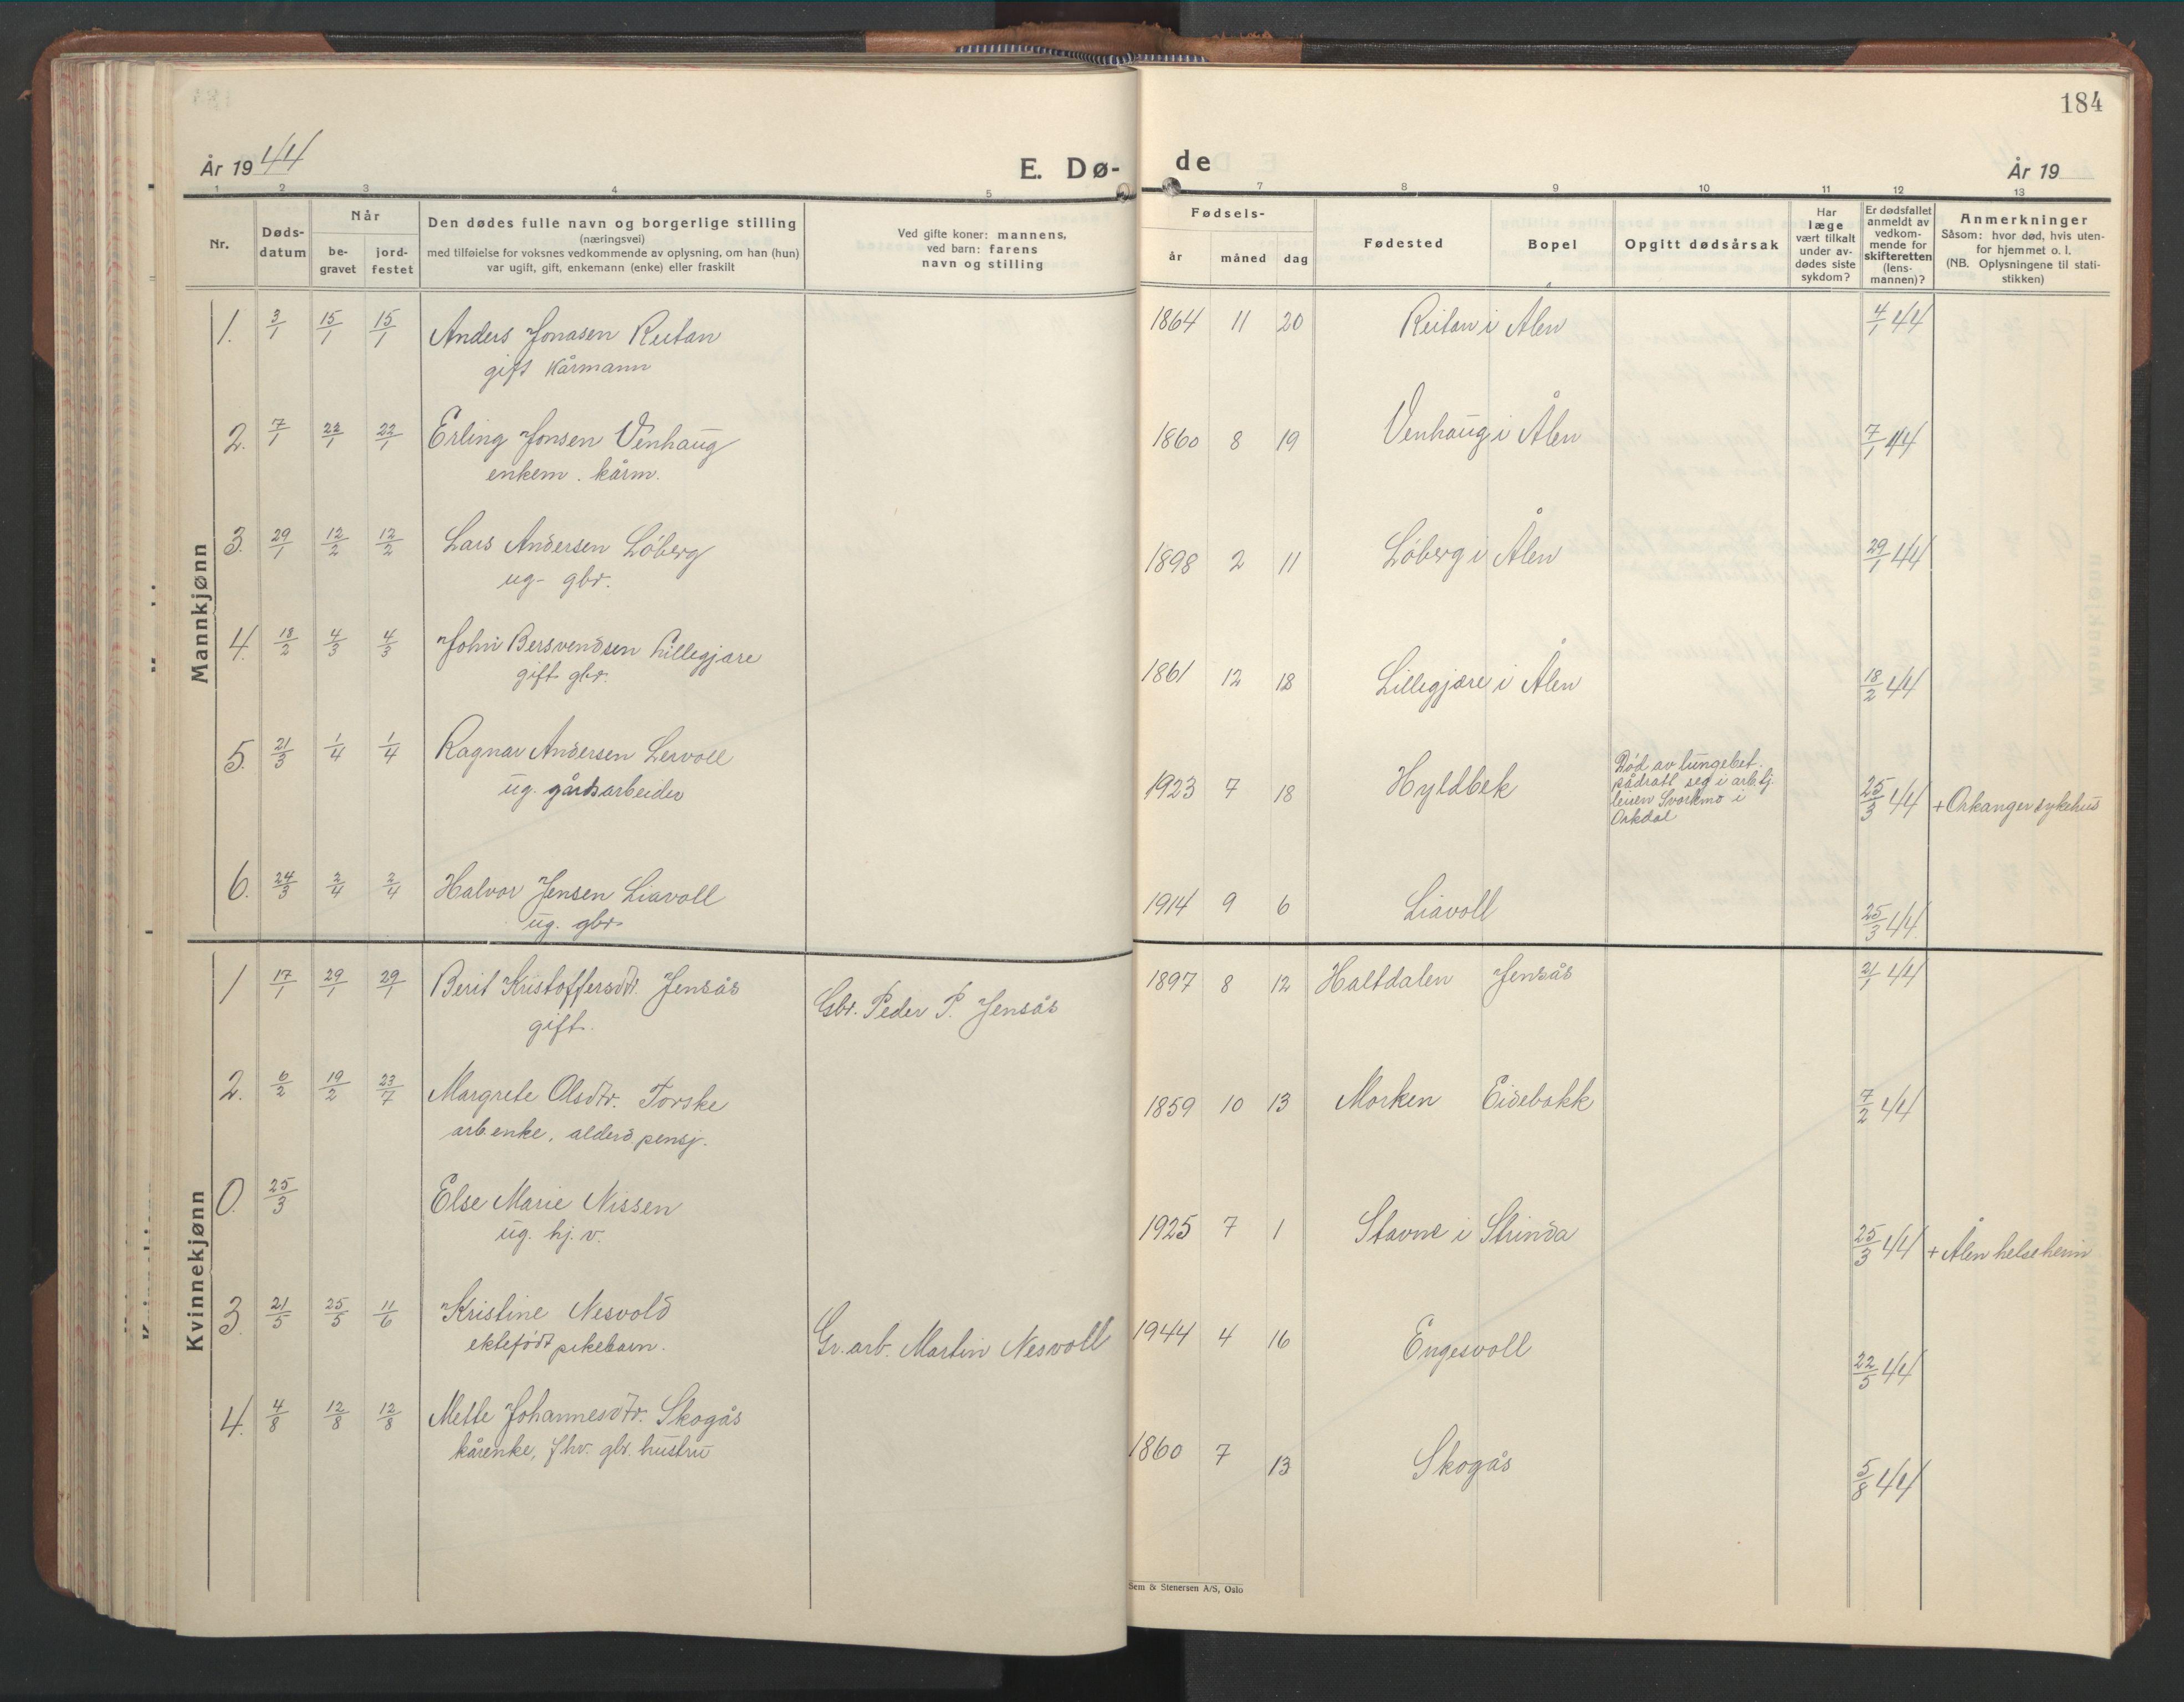 184
År 1944
E. Dø-
de
År 19
1 2 3 4 5 7 8 9 10 11 12 13
Nr.
Døds-
datum
Når
be-
gravet
jord-
festet
Den dødes fulle navn og borgerlige stilling
(næringsvei)
med tilføielse for voksnes vedkommende av oplysning, om han (hun)
var ugift, gift, enkemann (enke) eller fraskilt
Ved gifte koner: mannens,
ved barn: farens
navn og stilling
Fødsels-
år måned dag
Fødested
Bopel
Opgitt dødsårsak
Har
læge
vært tilkalt
under av-
dødes siste
sykdom?
Er dødsfallet
anmeldt av
vedkom-
mende for
skifteretten
(lens-
mannen)?
Anmerkninger
Såsom: hvor død, hvis uten-
for hjemmet o. l.
(NB. Oplysningene til stati-
stikken)
Mannkjønn
1. 3/1 15/1 15/1 Anders Jonasen Reitan 1864 11 20 Reitan i Ålen 4/1 44
gift kårmann
2. 7/1 22/1 22/1 Erling Jonsen Venhaug 1860 8 19 Venhaug i Ålen 7/1 44
enkem. kårm.
3. 29/1 12/2 12/2 Lars Andersen Löberg 1898 2 11 Löberg i Ålen 29/1 44
ug- gbr.
4. 18/2 4/3 4/3 John Bersvendsen Lillegjære 1861 12 18 Lillegjære i Ålen 18/2 44
gift gbr.
5. 21/3 1/4 1/4 Ragnar Andersen Lervoll 1923 7 18 Hyldbek 25/3 44 + Orkanger sykehus
ug. gårdsarbeider
Död av lungebet.
pådratt seg i arb.tj.
leiren Svorkmo i
Orkdal
6. 24/3 2/4 2/4 Halvor Jensen Liavoll 1914 9 6 Liavoll 25/3 44
ug. gbr.
Kvinnekjønn
1 17/1 29/1 29/1 Berit Kristoffersdt. Jensås Gbr. Peder P. Jensås 1897 8 12 Haltdalen Jensås 21/1 44
gift.
2. 6/2 19/2 23/7 Margrete Olsdtr. Torske 1859 10 13 Morken Eidebakk 7/2 44
arb.enke, alders.pensj.
0. 25/3 Else Marie Nissen 1925 7 1 Stavne i Strinda 25/3 44 + Ålen helseheim
ug. hj. v.
3. 21/5 25/5 11/6 Kristine Nesvold Gr. arb. Martin Nesvoll 1944 4 16 Engesvoll 22/5 44
ektefödt pikebarn.
4. 4/8 12/8 12/8 Mette Johannesdtr. Skogås 1860 7 13 Skogås 5/8 44
kårenke, fhv. gbr. hustru
Sem & Stenersen A/S, Oslo